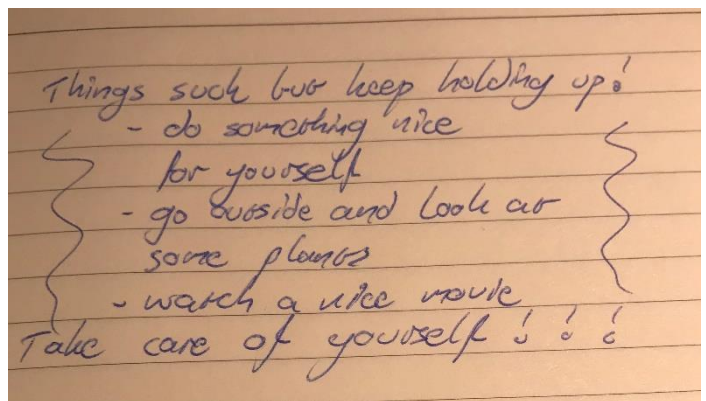 Things suck but keep holding up!
- do something nice
for yourself
- go outside and look at
some plants
- watch a nice movie
Take care of yourself ! ! !